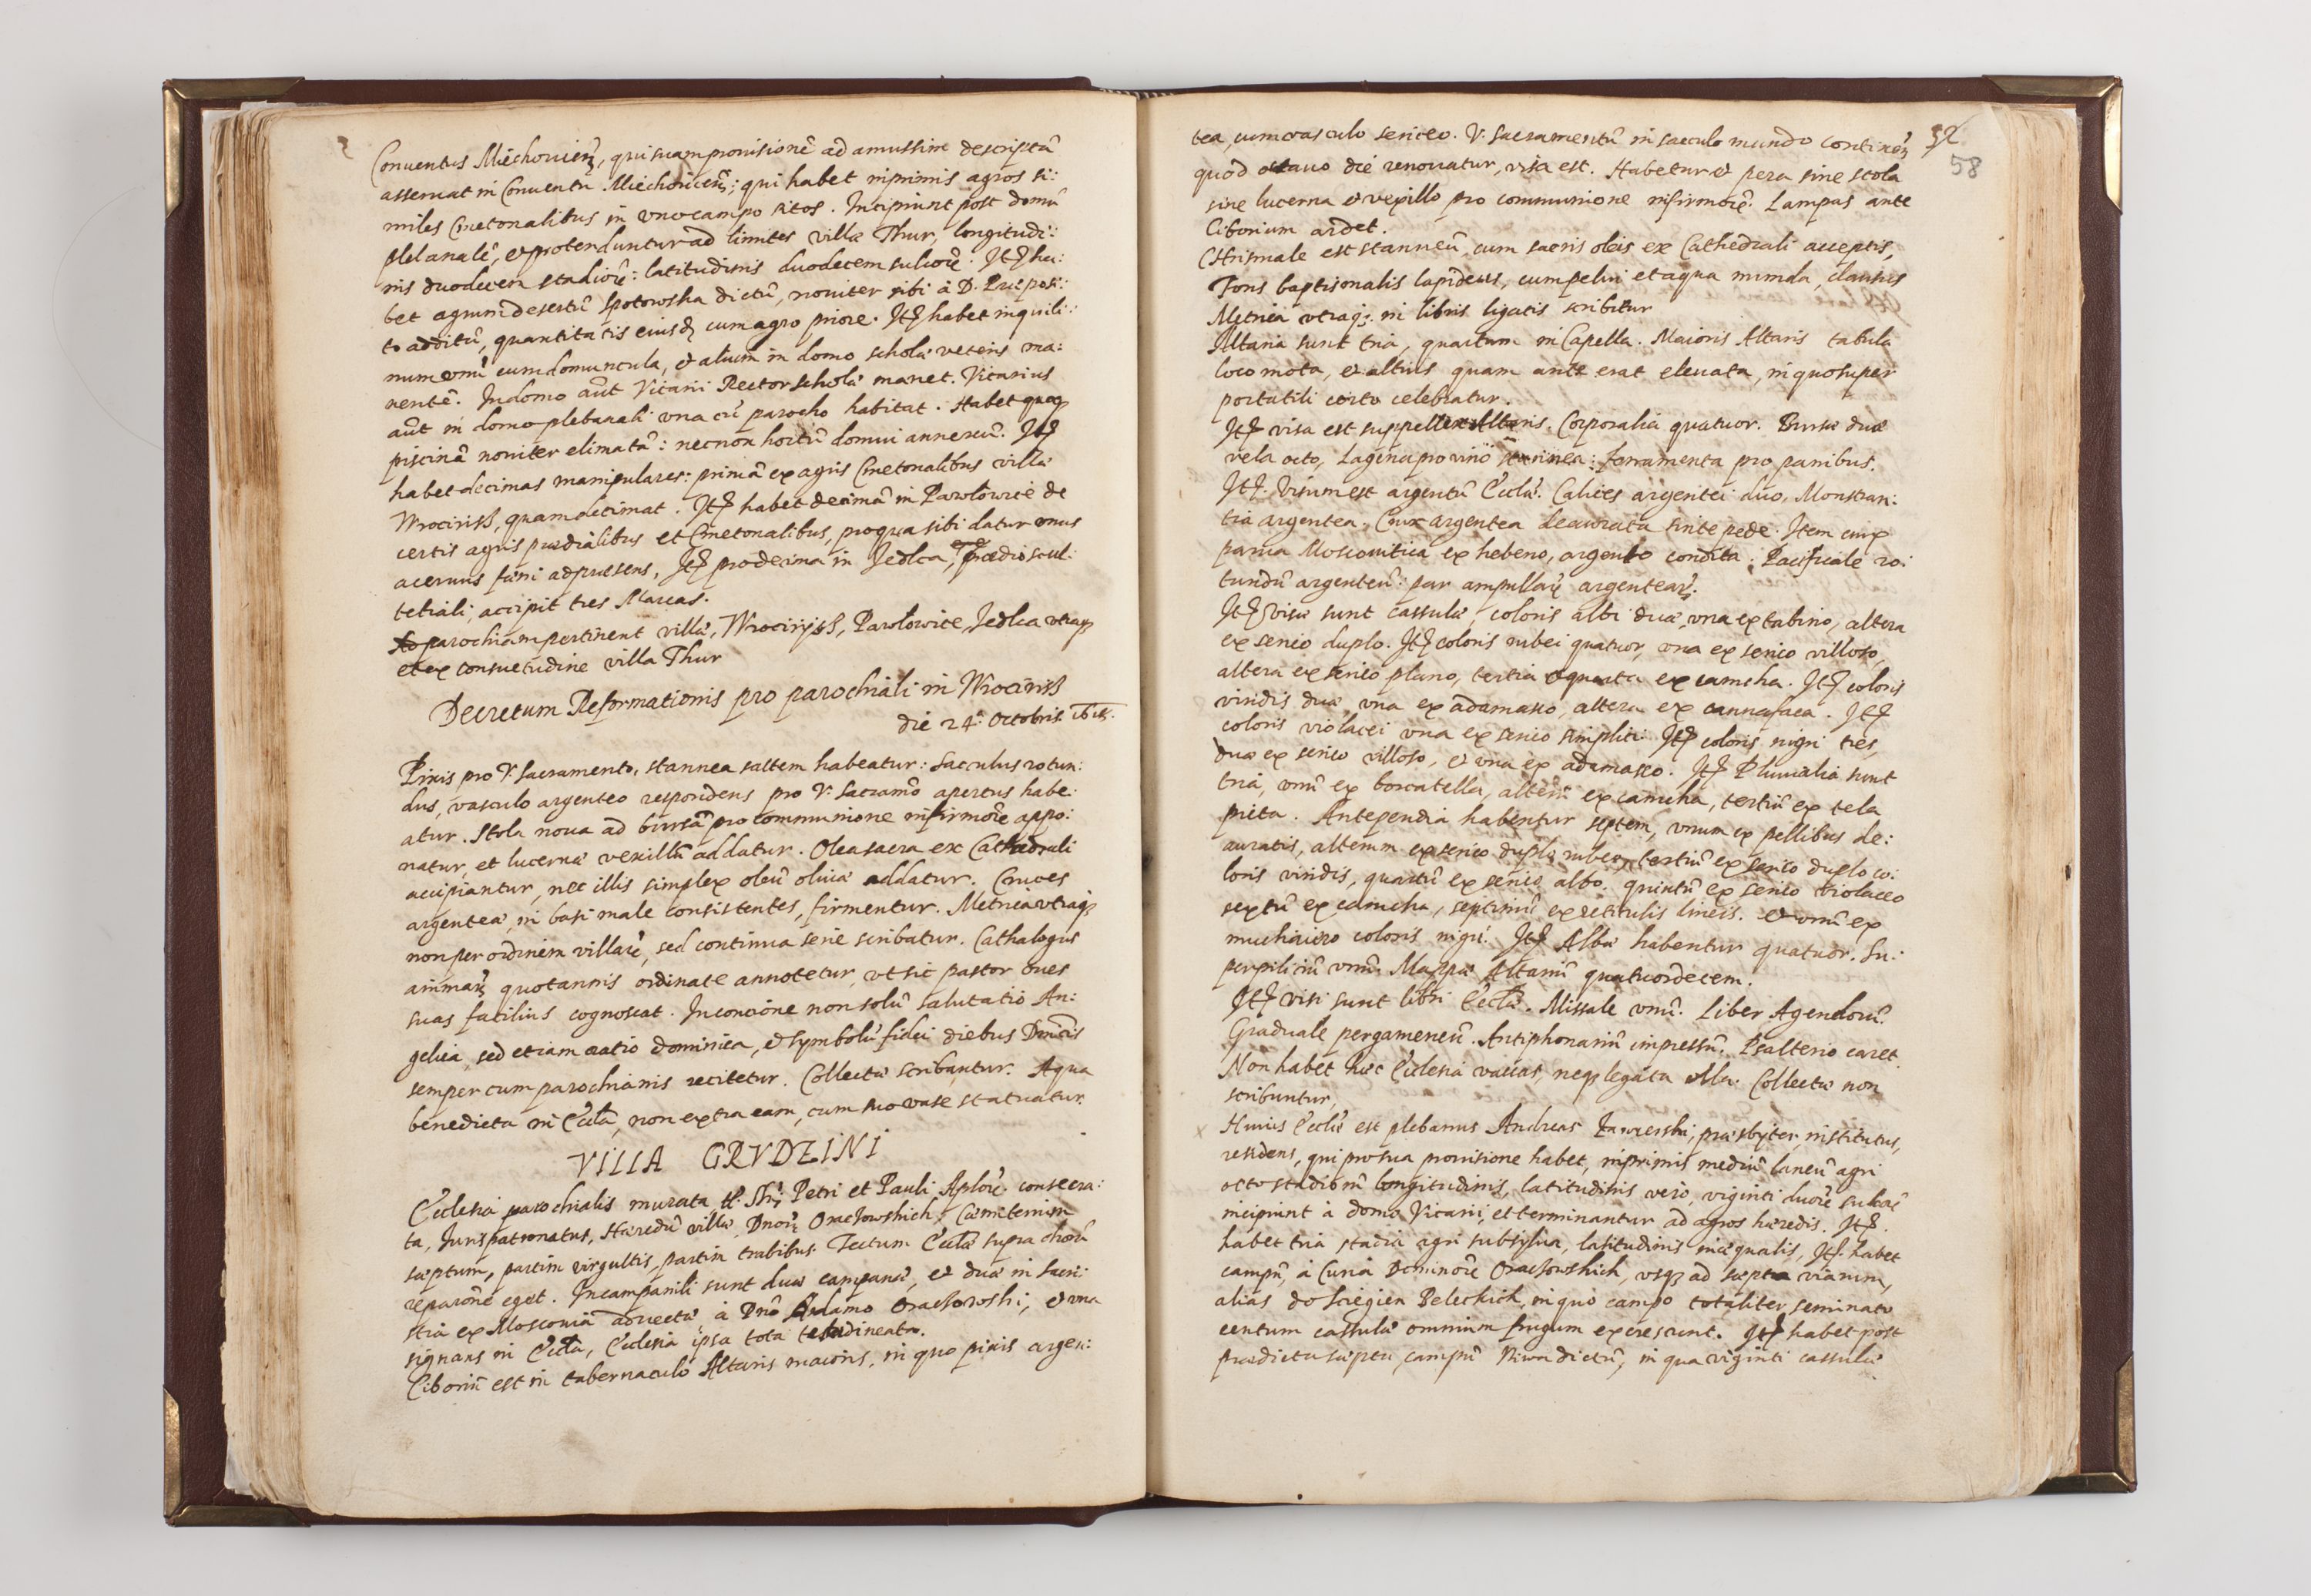 Conuentus Miechouien̄, qui suam prouisionē ad amussim descriptā
asseruat in Conuentu Miechouien̄; qui habet inprimis agros si:
miles Cmetonalibus in vno campo sitos. Incipiunt post domū
plebanalē, et protenduntur ad limites villæ Thur, longitudi:
nis duodecem stadiorū: latitudinis duodecem sulcorū. Itē ha:
bet agrum desertū Spotowska dictū, nouiter sibi à D. Præposi:
to additū, quantitatis eiusd̄ cum agro priore. Itē habet inquili:
num vnū cum domuncula, et alium in domo scholæ veteris ma:
nentē. In domo aūt Vicarii Rector scholæ manet. Vicarius
aūt in domo plebanali vna cū parocho habitat. Habet quoq3
piscinā nouiter elimatā: necnon hortū domui annexū. Itē
habet decimas manipulares: primā ex agris Cmetonalibus villæ
Wrociriss, quam decimat. Itē habet decimā in Pawłowice de
certis agris prædialibus et Cmetonalibus, pro qua sibi datur vnus
aceruus fœni ad præsens, Itē pro decima in Jedlca, prædio scul:
tetiali, accipit tres Marcas.
Ad parochiam pertinent villæ, Wrociryss, Pawłowice, Jedlca vtraq3
et ex consuetudine villa Thur
Decretum Reformationis pro parochiali in Wrociriss
die 24ᵃ Octobris 1618.
Pixis pro V. Sacramento, stannea saltem habeatur: Sacculus rotun:
dus, vasculo argenteo respondens pro V. Sacramō apertus habe:
atur. Stola noua ad bursā pro communione infirmorū appo:
natur, et lucernæ vexillū addatur. Olea sacra ex Cathedrali
accipiantur, nec illis simplex oleū oliuæ addatur. Cruces
argenteæ, in basi male consistentes, firmentur. Metrica vtraq3
non per ordinem villarū, sed continua serie scribatur. Cathalogus
animarū quotannis ordinate annotetur, vt sic pastor oues
suas facilius cognoscat. In concione non solū salutatio An:
gelica, sed etiam oratio dominica, et symbolū fidei diebus Dnicis
semper cum parochianis recitetur. Collectæ scribantur. Aqua
benedicta in Eccla, non extra eam, cum suo vase statuatur.
VILLA GRVDZINI
Ecclesia parochialis murata tt. SS. Petri et Pauli Aplorū consecra:
ta, Juris patronatus, Hæredū villæ, Dnorū Oraczowskich, Cæmiterium
sæptum, partim virgultis, partim trabibus. Tectum Ecclæ supra chorū
reparōne eget. In campanili sunt duæ campanæ, et duæ in sacri:
stia ex Mosconia aduectæ, à Dnō Adamo Oraczowski, et vna
signans in Eccla, Ecclesia ipsa tota testudineata.
Ciboriū est in tabernaculo Altaris maioris, in quo pixis argen:
52
58
tea, cum vasculo sericeo. V. Sacramentū in sacculo mundo continēs
quod octauo die renouatur, visa est. Habetur et pera sine stola
sine lucerna et vexillo pro communione infirmorū. Lampas ante
Ciborium ardet.
Chrismale est stanneū, cum sacris oleis ex Cathedrali acceptis,
Fons baptismalis lapideus, cum pelui et aqua munda, clausus
Metrica vtraq3 in libris ligatis scribitur
Altaria sunt tria, quartum in Capella. Maioris Altaris tabula
loco mota, et altius quam ante erat eleuata, in quo super
portatili certo celebratur.
Itē visa est suppellex Altaris. Corporalia quatuor. Bursæ duæ
vela octo, Lagena pro vino stannea: ferramenta pro panibus.
Itē. Visum est argentū Ecclæ. Calices argentei duo, Monstran:
tia argentea. Crux argentea deaurata sinte pede. Item crux
parua Moscouitica ex hebeno, argento condita: Pacificale ro:
tundū argenteū: par ampullarū argentearū.
Itē visæ sunt cassulæ, coloris albi duæ, vna ex tabino, altera
ex serico duplo. Itē coloris rubei quatuor, vna ex serico villoso,
altera ex serico plano, tertia et quarta ex camcha. Itē coloris
viridis duæ, vna ex adamasco, altera ex cannafaca. Itē
coloris violacei vna ex serico simplici. Itē coloris nigri tres,
duæ ex serico villoso, et vna ex adamasco. Itē Pluuialia sunt
tria, vnū ex borcatella, alterū ex camcha, tertiū ex tela
picta. Antependia habentur septem, vnum ex pellibus de:
auratis, alterum ex serico duplo rubeo, tertiū ex serico duplo co:
loris viridis, quartū ex serico albo. quintū ex serico violaceo
sextū ex camcha, septimū ex reticulis lineis. et vnū ex
muchaiero coloris nigri. Itē Albæ habentur quatuor. Su:
perpiliciū vnū. Mappæ Altariū quatuordecem.
Itē visi sunt libri Ecclæ. Missale vnū. Liber Agendorū.
Graduale pergameneū. Antiphonariū impressū. Psalterio caret.
Non habet hæc Ecclesia vaccas, neq3 legata vlla. Collectæ non
scribuntur.
Huius Ecclæ est plebanus Andreas præsbyter, institutus,
residens, qui pro sua prouisione habet, inprimis mediū laneū agri
octo stadiorū longitudinis, latitudinis vero, viginti duorū sulcorū
incipiunt à domo Vicarii, et terminantur ad agros hæredis. Itē
habet tria stadia agri sub sylua, latitudinis inæqualis, Itē. habet
campū, à Curia Dominorū Oraczowskich, vsq3 ad sæpta viarum,
alias do Sciegien Beleckich, in quo campo totaliter seminato
centum cassulæ omnium frugum excrescunt. Itē habet post
prædicta sæpta, campū Niwa dictū, in qua viginti cassulæ